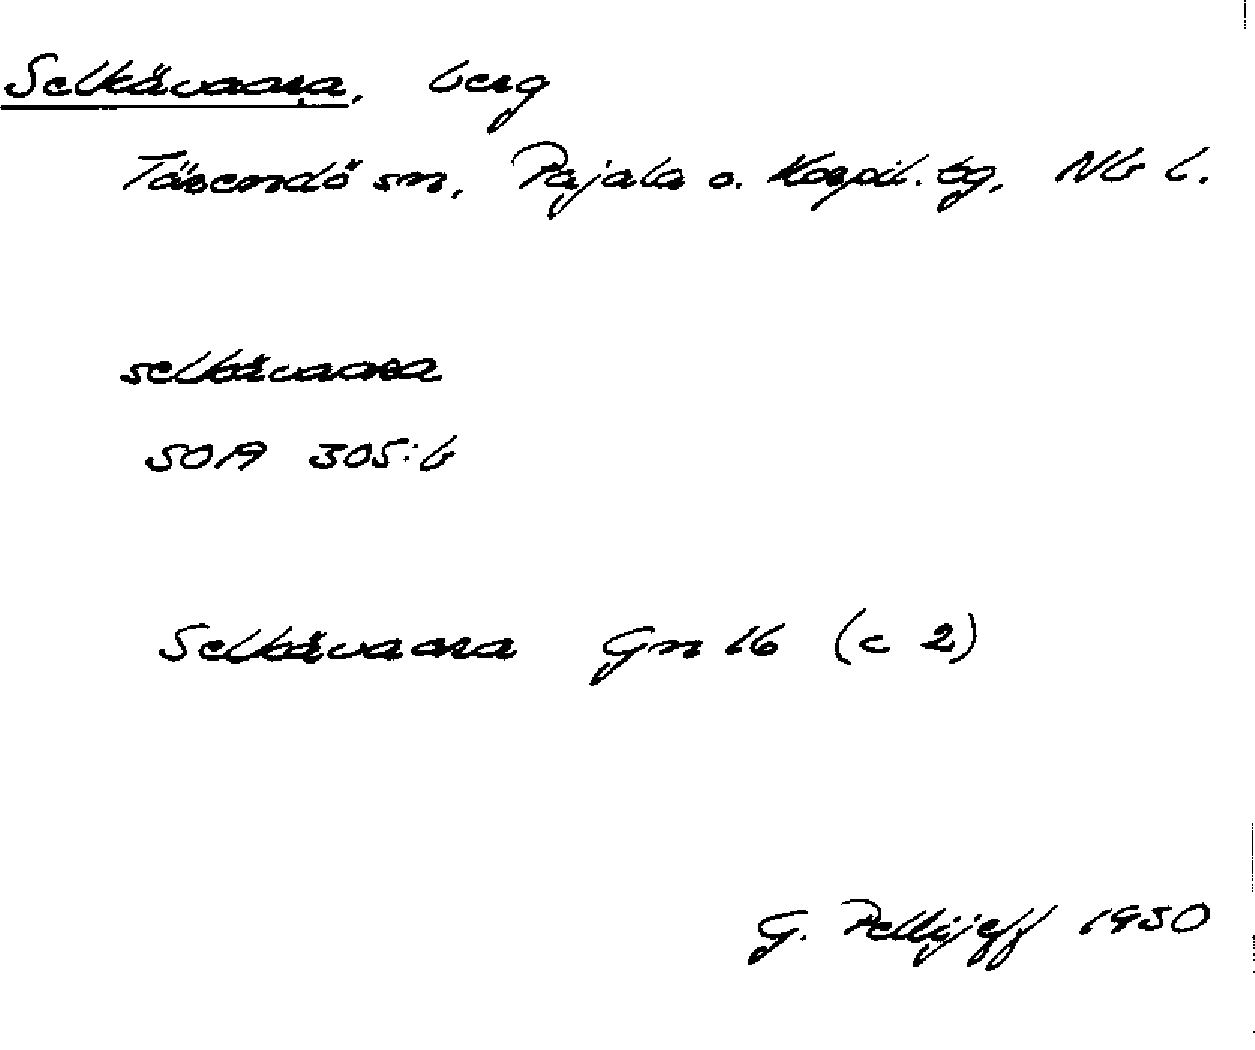 Selkävaara, berg
Tärendö sn, Pajala o. Korpil. tg, Nb l.
selkävaara
SOA 305:6
Selkävaara Gn 16 (c 2)
G. Pellijeff 1950